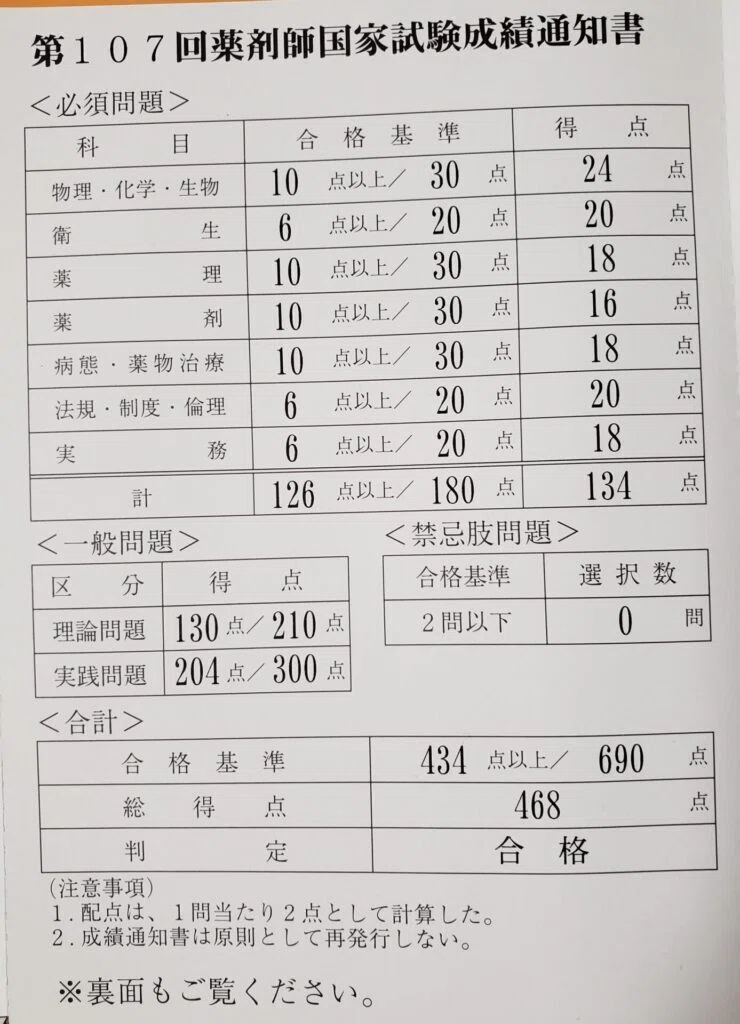 第１０７回薬剤師国家試験成績通知書
＜必須問題＞
科目 合格基準 得点
物理・化学・生物 10 点以上／ 30 点 24 点
衛生 6 点以上／ 20 点 20 点
薬理 10 点以上／ 30 点 18 点
薬剤 10 点以上／ 30 点 16 点
病態・薬物治療 10 点以上／ 30 点 18 点
法規・制度・倫理 6 点以上／ 20 点 20 点
実務 6 点以上／ 20 点 18 点
計 126 点以上／ 180 点 134 点
＜一般問題＞
区分 得点
理論問題 130 点／ 210 点
実践問題 204 点／ 300 点
＜禁忌肢問題＞
合格基準 選択数
２問以下 0 問
＜合計＞
合格基準 434 点以上／ 690 点
総得点 468 点
判定 合格
（注意事項）
１.配点は、１問当たり２点として計算した。
２.成績通知書は原則として再発行しない。
※裏面もご覧ください。